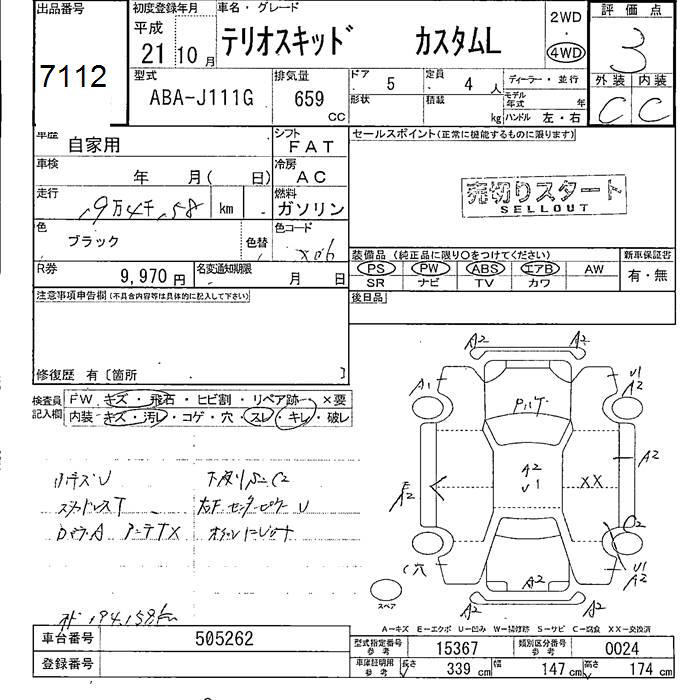 出品番号
7112
初度登録年月
平成
21 10 月
車名・グレード
テリオスキッド カスタムL
2WD
・
4WD
評価点
3
外装 内装
C C
型式
ABA-J111G
排気量
659
CC
ドア 5
定員 4 人
形状
積載 kg
ディーラー・並行
モデル年式 年
ハンドル 左・右
車歴
自家用
シフト
FAT
車検
年 月( 日)
冷房
AC
走行
19万4千158 km
燃料
ガソリン
色
ブラック
色替
色コード
X06
R券
9,970 円
名変通知期限
月 日
セールスポイント(正常に機能するものに限ります)
売切りスタート
SELLOUT
装備品 (純正品に限り○をつけてください)
新車保証書
PS PW ABS エアB AW
SR ナビ TV カワ
有・無
後日品
注意事項申告欄(不具合内容等は具体的に記入して下さい)
修復歴 有[箇所 ]
検査員
記入欄
FW キズ・飛石・ヒビ割・リペア跡 ×要
内装 キズ・汚レ・コゲ・穴・スレ・キレ・破レ
A2 A2
A1
U1
A2
A2
U1
XX
A2
A2
C2
C穴
U1
A2
A2
A2 A2
スペア
A-キズ E-エクボ U-凹み W-補修跡 S-サビ C-腐食 XX-交換済
194,158km
車台番号
505262
登録番号
型式指定番号
参考
15367
類別区分番号
参考
0024
車庫証明用
参考
長さ 339 cm
幅 147 cm
高さ 174 cm